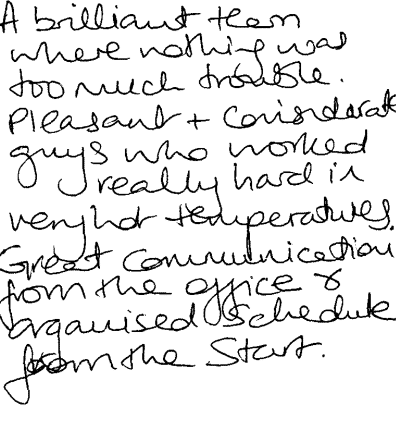 A brilliant team
where nothing was
too much trouble.
Pleasant + Considerate
guys who worked
really hard in
very hot temperatures.
Great Communication
from the office &
organised Schedule
from the Start.